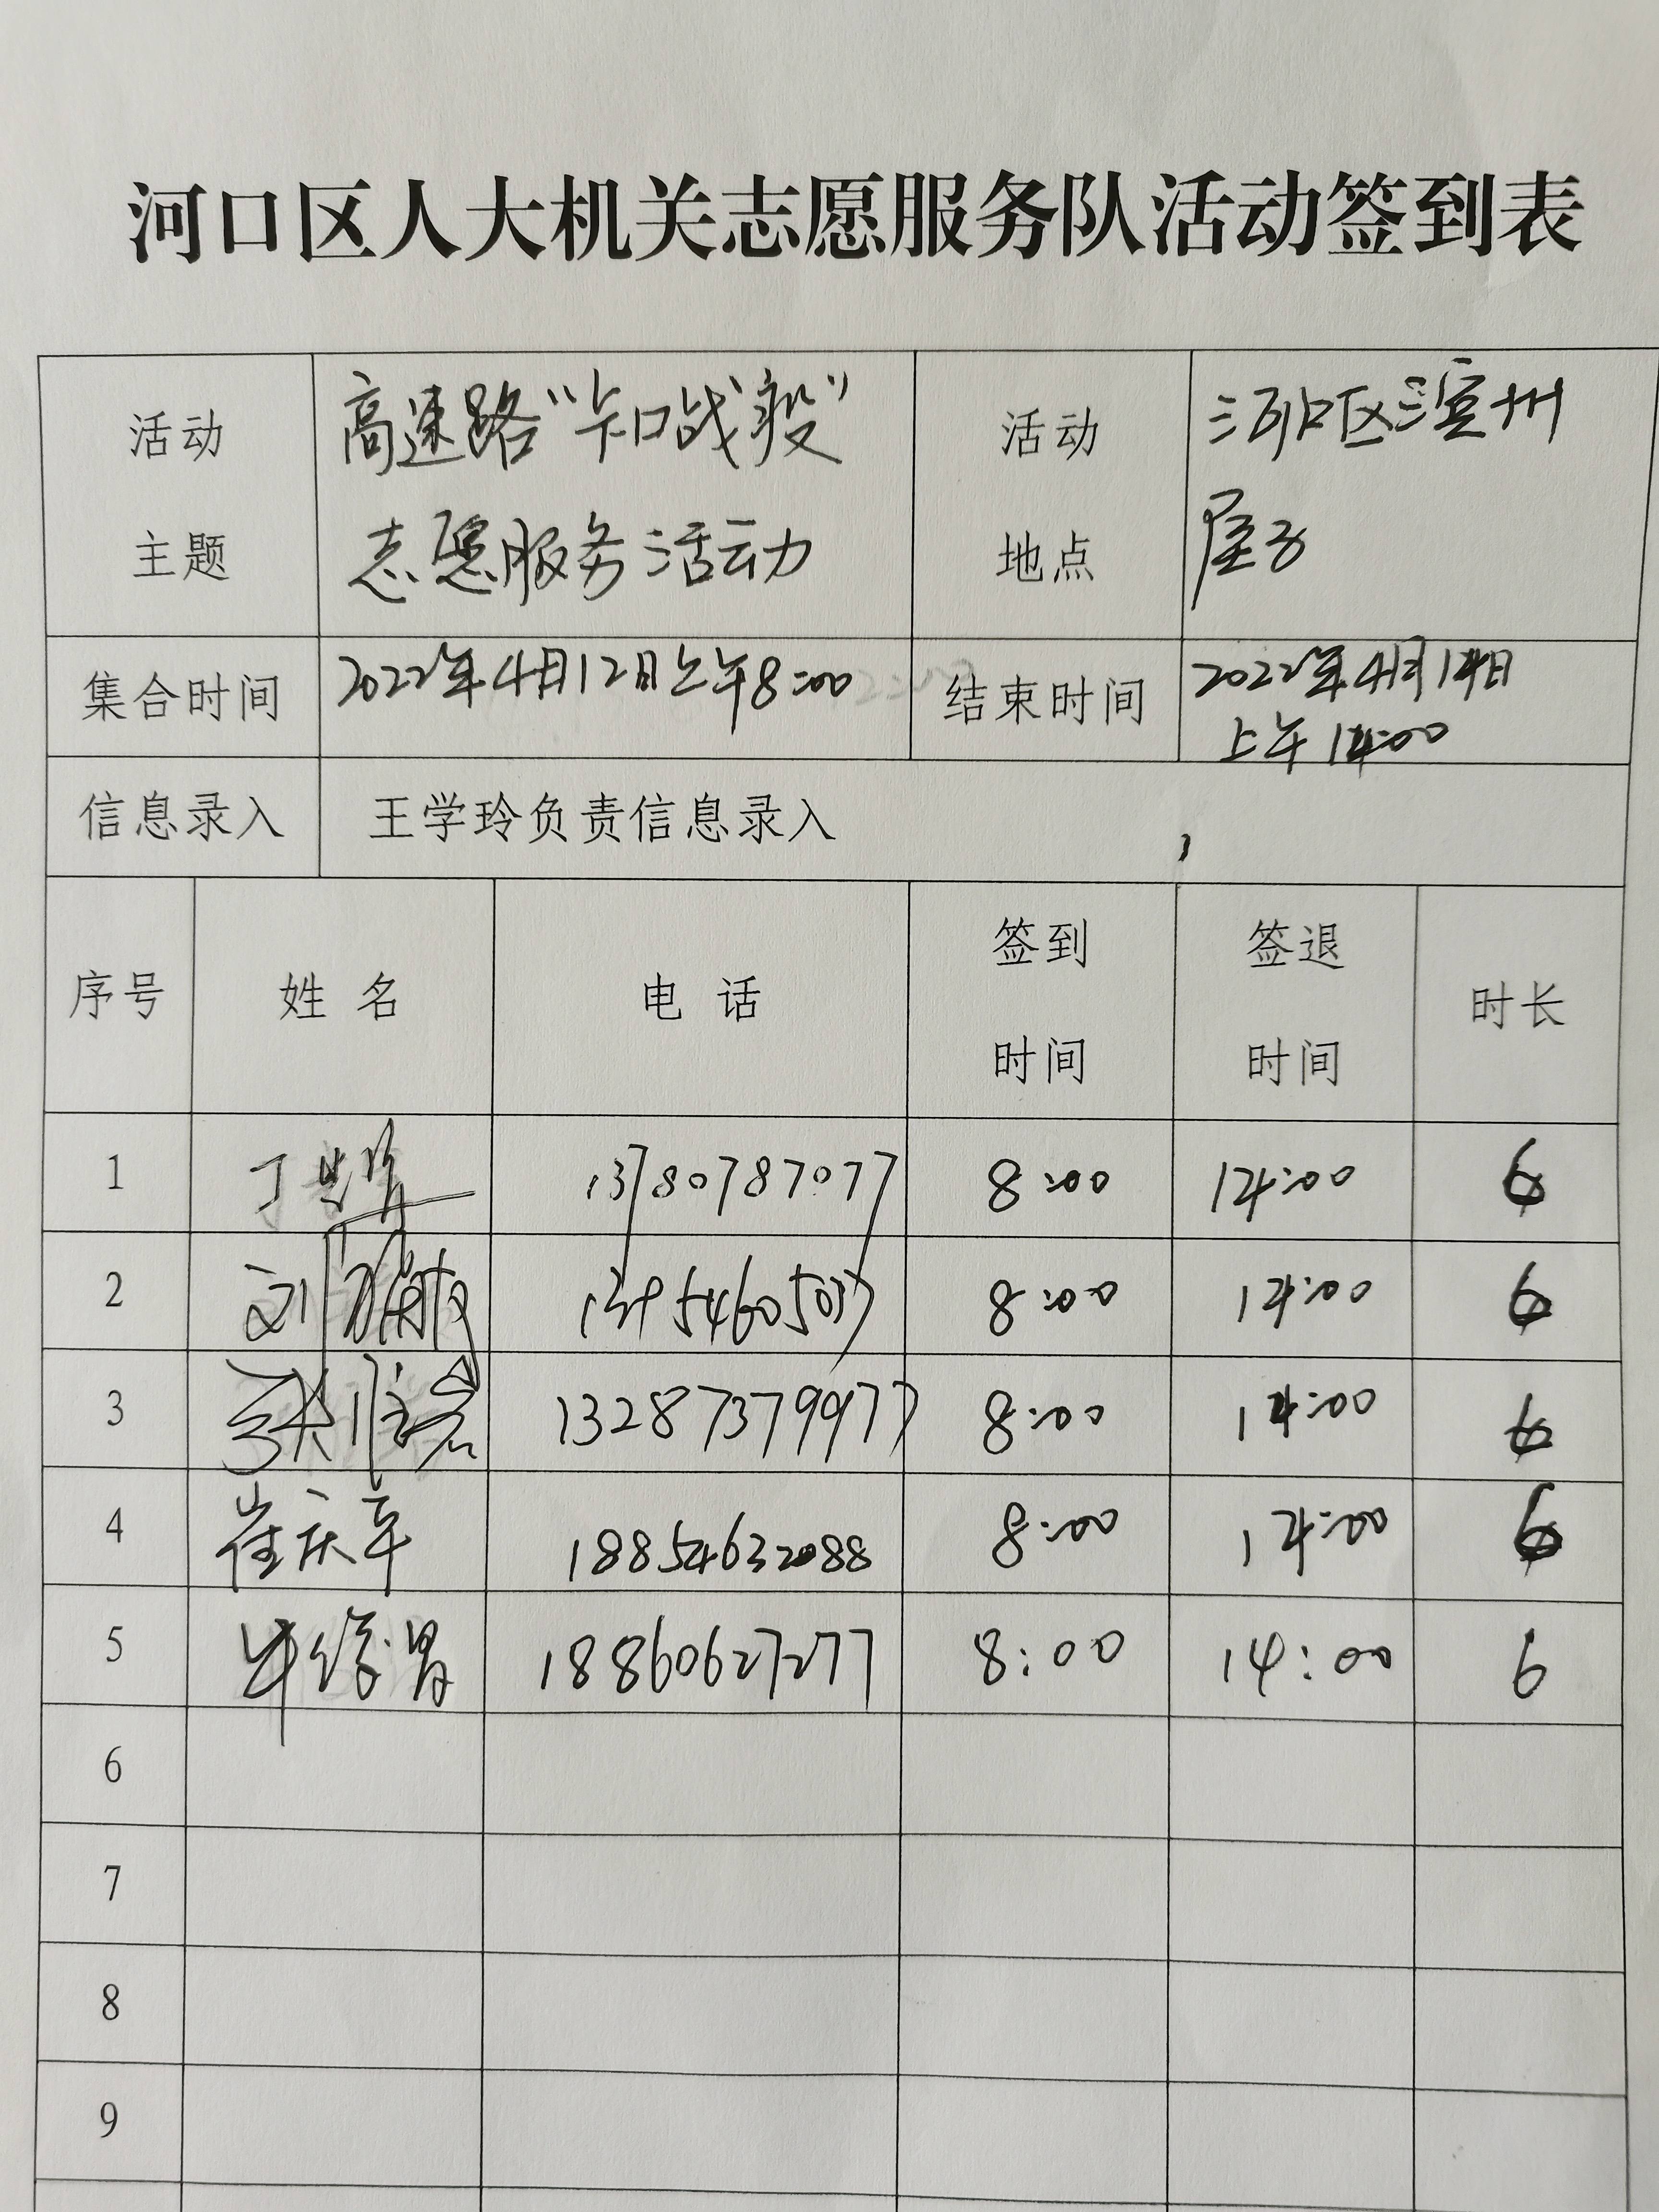 河口区人大机关志愿服务队活动签到表
活动主题 高速路“卡口战疫” 志愿服务活动 活动地点 河口区滨州屋子
集合时间 2022年4月12日上午8:00 结束时间 2022年4月14日上午14:00
信息录入 王学玲负责信息录入
序号 姓名 电话 签到时间 签退时间 时长
1 丁 13780787077 8:00 14:00 6
2 刘 8:00 14:00 6
3 张 13287379977 8:00 14:00 6
4 崔庆军 18854632088 8:00 14:00 6
5 18860627277 8:00 14:00 6
6
7
8
9